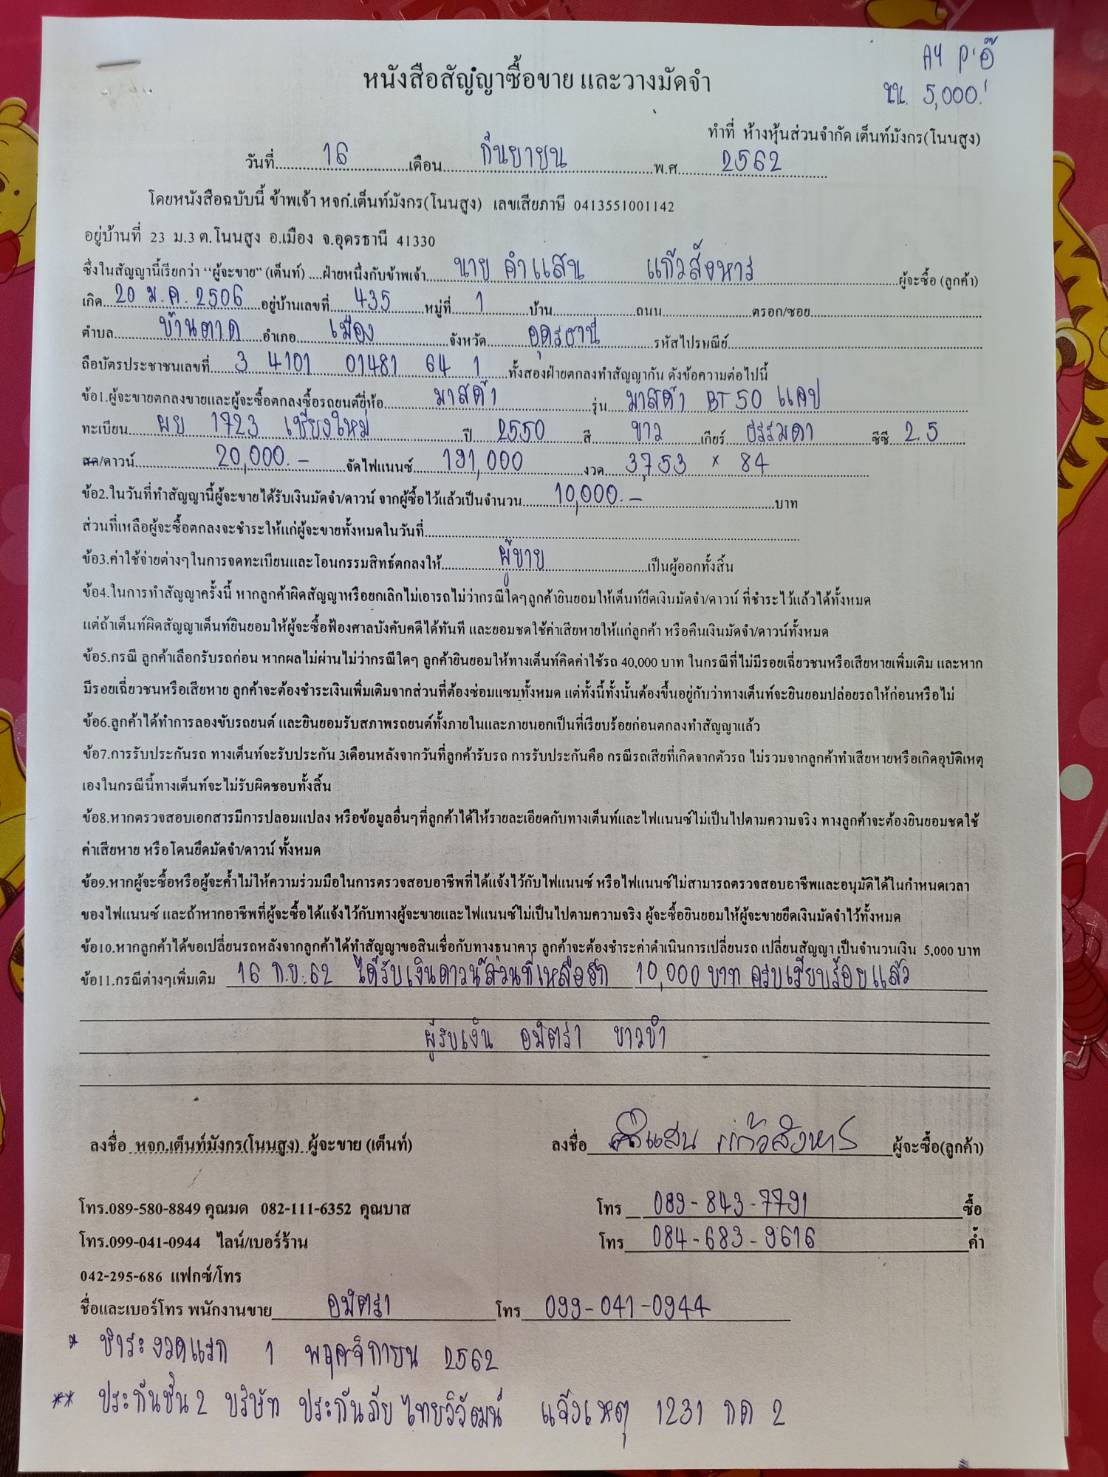 A4 P'อู๊
นน. 5,000.-
หนังสือสัญญาซื้อขาย และวางมัดจำ
ทำที่ ห้างหุ้นส่วนจำกัด เต็นท์มังกร(โนนสูง)
วันที่ 16 เดือน กันยายน พ.ศ. 2562
โดยหนังสือฉบับนี้ ข้าพเจ้า หจก.เต็นท์มังกร(โนนสูง) เลขเสียภาษี 0413551001142
อยู่บ้านที่ 23 ม.3 ต.โนนสูง อ.เมือง จ.อุดรธานี 41330
ซึ่งในสัญญานี้เรียกว่า “ผู้จะขาย” (เต็นท์) ....ฝ่ายหนึ่งกับข้าพเจ้า นาย คำแสน แก้วสังหาร ผู้จะซื้อ (ลูกค้า)
เกิด 20 ม.ค. 2506 อยู่บ้านเลขที่ 435 หมู่ที่ 1 บ้าน ถนน ตรอก/ซอย
ตำบล บ้านตาด อำเภอ เมือง จังหวัด อุดรธานี รหัสไปรษณีย์
ถือบัตรประชาชนเลขที่ 3 4101 01481 64 1 ทั้งสองฝ่ายตกลงทำสัญญากัน ดังข้อความต่อไปนี้
ข้อ1.ผู้จะขายตกลงขายและผู้จะซื้อตกลงซื้อรถยนต์ยี่ห้อ มาสด้า รุ่น มาสด้า BT50 แคป
ทะเบียน ผย 1723 เชียงใหม่ ปี 2550 สี ขาว เกียร์ ธรรมดา ซีซี 2.5
สด/ดาวน์ 20,000.- จัดไฟแนนซ์ 191,000 งวด 3753 × 84
ข้อ2.ในวันที่ทำสัญญานี้ผู้จะขายได้รับเงินมัดจำ/ดาวน์ จากผู้ซื้อไว้แล้วเป็นจำนวน 10,000.- บาท
ส่วนที่เหลือผู้จะซื้อตกลงจะชำระให้แก่ผู้จะขายทั้งหมดในวันที่
ข้อ3.ค่าใช้จ่ายต่างๆในการจดทะเบียนและโอนกรรมสิทธ์ตกลงให้ ผู้ขาย เป็นผู้ออกทั้งสิ้น
ข้อ4.ในการทำสัญญาครั้งนี้ หากลูกค้าผิดสัญญาหรือยกเลิกไม่เอารถไม่ว่ากรณีใดๆลูกค้ายินยอมให้เต็นท์ยึดเงินมัดจำ/ดาวน์ ที่ชำระไว้แล้วได้ทั้งหมด
แต่ถ้าเต็นท์ผิดสัญญาเต็นท์ยินยอมให้ผู้จะซื้อฟ้องศาลบังคับคดีได้ทันที และยอมชดใช้ค่าเสียหายให้แก่ลูกค้า หรือคืนเงินมัดจำ/ดาวน์ทั้งหมด
ข้อ5.กรณี ลูกค้าเลือกรับรถก่อน หากผลไม่ผ่านไม่ว่ากรณีใดๆ ลูกค้ายินยอมให้ทางเต็นท์คิดค่าใช้รถ 40,000 บาท ในกรณีที่ไม่มีรอยเฉี่ยวชนหรือเสียหายเพิ่มเติม และหาก
มีรอยเฉี่ยวชนหรือเสียหาย ลูกค้าจะต้องชำระเงินเพิ่มเติมจากส่วนที่ต้องซ่อมแซมทั้งหมด แต่ทั้งนี้ทั้งนั้นต้องขึ้นอยู่กับว่าทางเต็นท์จะยินยอมปล่อยรถให้ก่อนหรือไม่
ข้อ6.ลูกค้าได้ทำการลองขับรถยนต์ และยินยอมรับสภาพรถยนต์ทั้งภายในและภายนอกเป็นที่เรียบร้อยก่อนตกลงทำสัญญาแล้ว
ข้อ7.การรับประกันรถ ทางเต็นท์จะรับประกัน 3เดือนหลังจากวันที่ลูกค้ารับรถ การรับประกันคือ กรณีรถเสียที่เกิดจากตัวรถ ไม่รวมจากลูกค้าทำเสียหายหรือเกิดอุบัติเหตุ
เองในกรณีนี้ทางเต็นท์จะไม่รับผิดชอบทั้งสิ้น
ข้อ8.หากตรวจสอบเอกสารมีการปลอมแปลง หรือข้อมูลอื่นๆที่ลูกค้าได้ให้รายละเอียดกับทางเต็นท์และไฟแนนซ์ไม่เป็นไปตามความจริง ทางลูกค้าจะต้องยินยอมชดใช้
ค่าเสียหาย หรือโดนยึดมัดจำ/ดาวน์ ทั้งหมด
ข้อ9.หากผู้จะซื้อหรือผู้จะค้ำไม่ให้ความร่วมมือในการตรวจสอบอาชีพที่ได้แจ้งไว้กับไฟแนนซ์ หรือไฟแนนซ์ไม่สามารถตรวจสอบอาชีพและอนุมัติได้ในกำหนดเวลา
ของไฟแนนซ์ และถ้าหากอาชีพที่ผู้จะซื้อได้แจ้งไว้กับทางผู้จะขายและไฟแนนซ์ไม่เป็นไปตามความจริง ผู้จะซื้อยินยอมให้ผู้จะขายยึดเงินมัดจำไว้ทั้งหมด
ข้อ10.หากลูกค้าได้ขอเปลี่ยนรถหลังจากลูกค้าได้ทำสัญญาขอสินเชื่อกับทางธนาคาร ลูกค้าจะต้องชำระค่าดำเนินการเปลี่ยนรถ เปลี่ยนสัญญา เป็นจำนวนเงิน 5,000 บาท
ข้อ11.กรณีต่างๆเพิ่มเติม 16 ก.ย. 62 ได้รับเงินดาวน์ส่วนที่เหลืออีก 10,000 บาท ครบเรียบร้อยแล้ว
ผู้รับเงิน อมิตรา ขาวขำ
ลงชื่อ หจก.เต็นท์มังกร(โนนสูง) ผู้จะขาย (เต็นท์) ลงชื่อ คำแสน แก้วสังหาร ผู้จะซื้อ(ลูกค้า)
โทร.089-580-8849 คุณมด 082-111-6352 คุณบาส โทร 089-843-7791 ซื้อ
โทร.099-041-0944 ไลน์/เบอร์ร้าน โทร 084-683-9616 ค้ำ
042-295-686 แฟกซ์/โทร
ชื่อและเบอร์โทร พนักงานขาย อมิตรา โทร 099-041-0944
* ชำระงวดแรก 1 พฤศจิกายน 2562
** ประกันชั้น 2 บริษัท ประกันภัย ไทยวิวัฒน์ แจ้งเหตุ 1231 กด 2